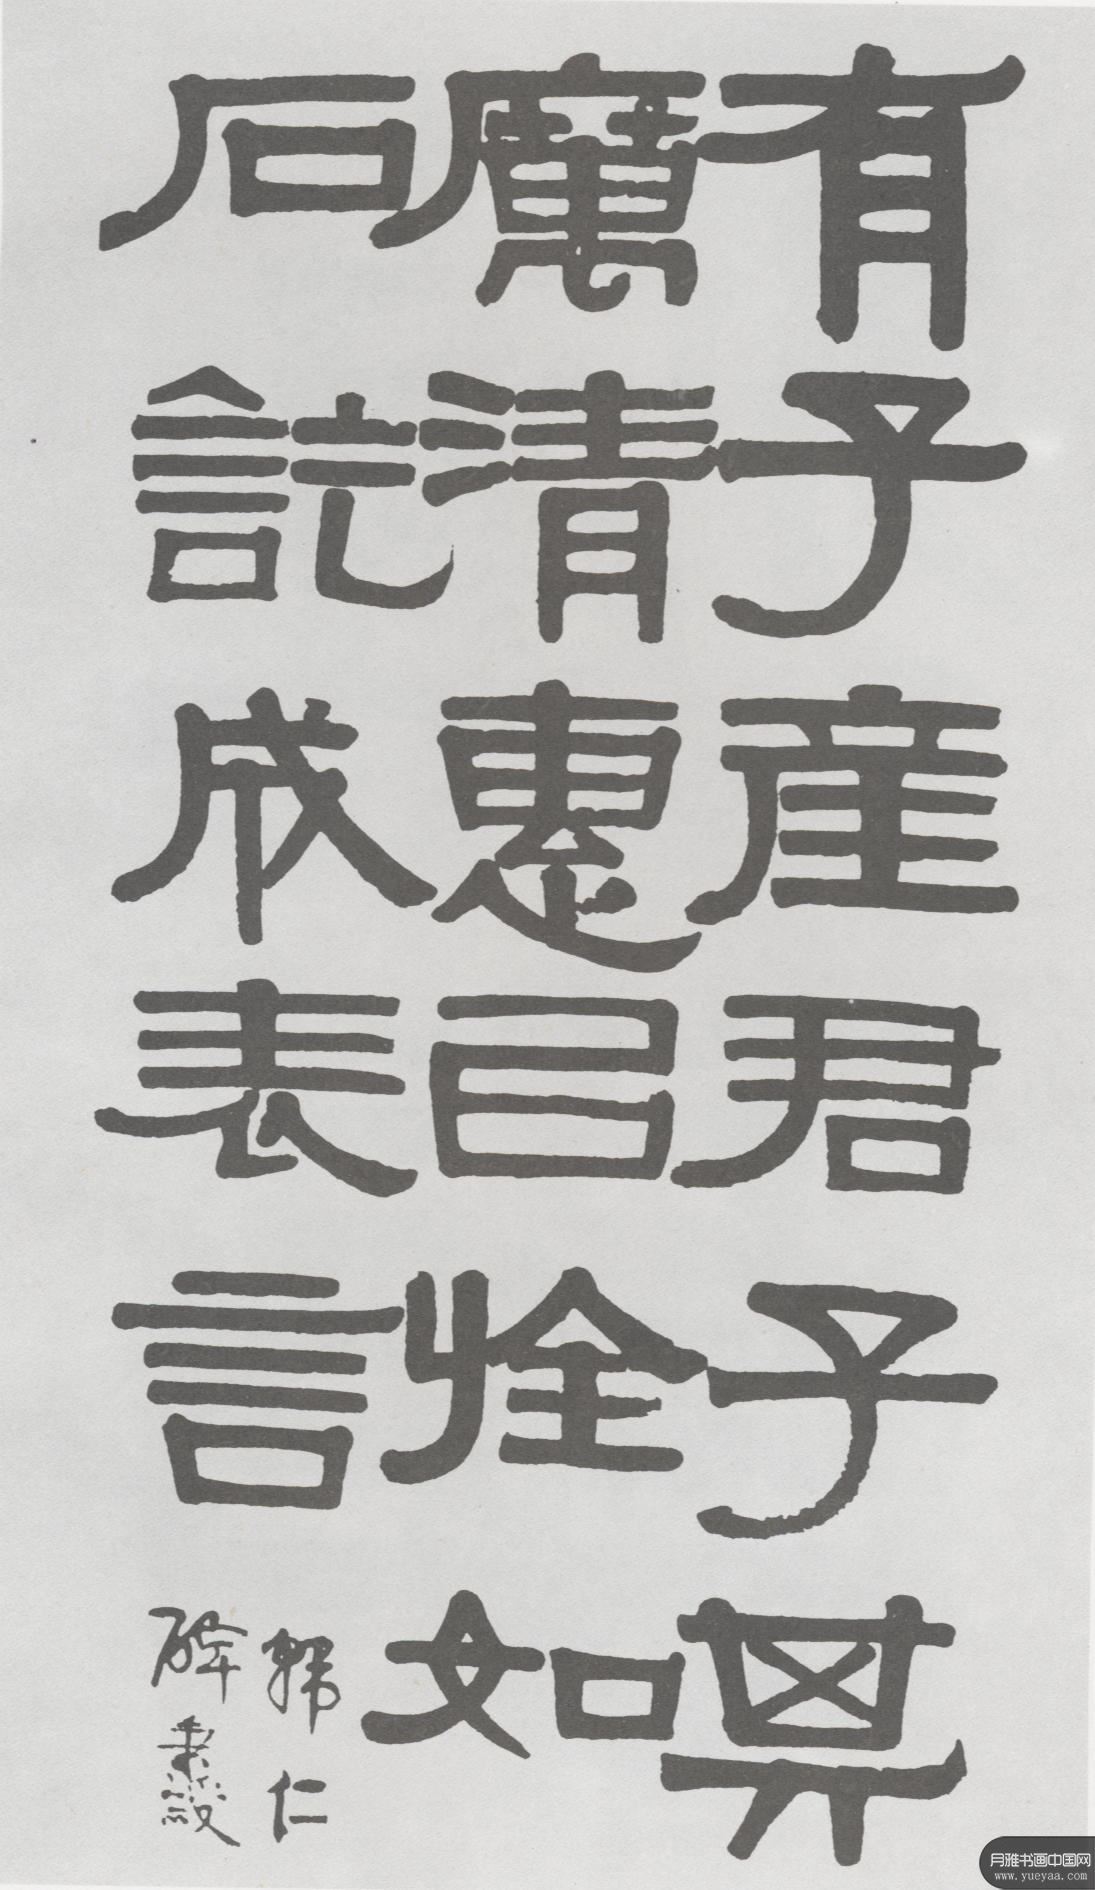 有子産君子其
厲清惠己牷如
石訖成表言
韓仁
碑 秉綬
月雅书画中国网
www.yueyaa.com